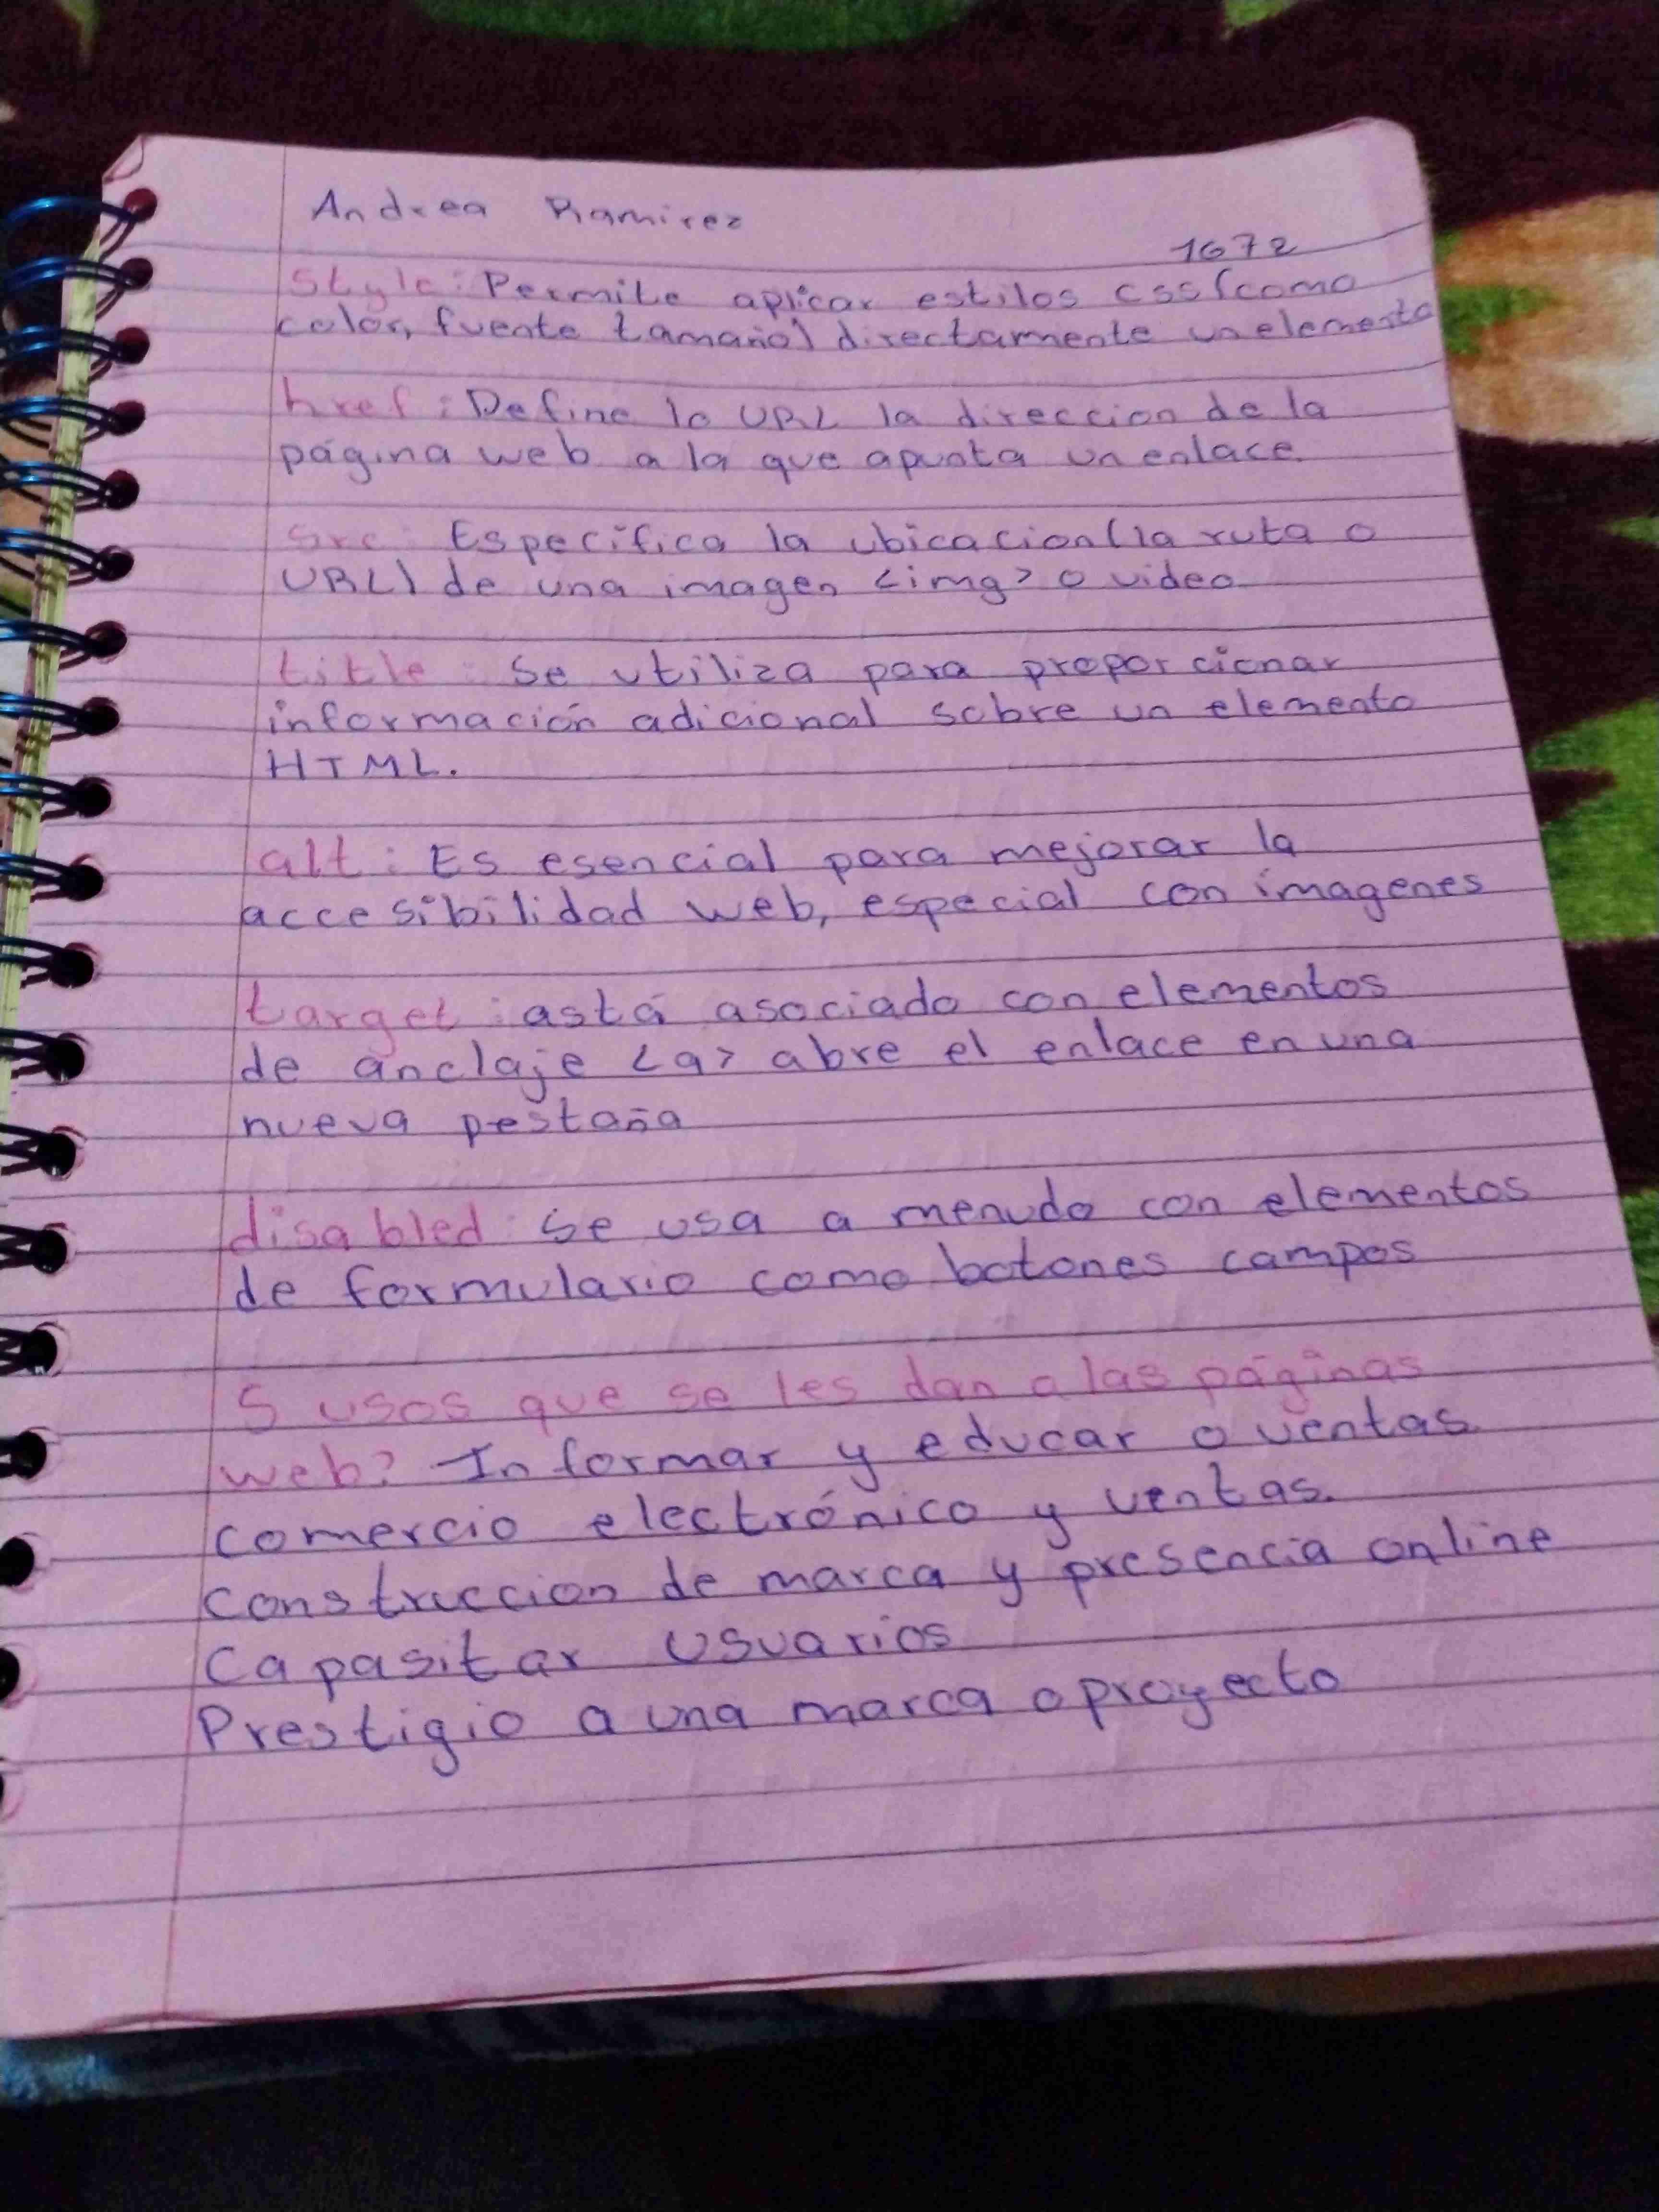 Andrea Ramirez
1672
Style: Permite aplicar estilos css(como
color, fuente tamaño) directamente un elemento
href: Define la URL la direccion de la
página web a la que apunta un enlace.
Src: Especifica la ubicacion(la ruta o
URL) de una imagen <img> o video
title: Se utiliza para proporcionar
información adicional sobre un elemento
HTML.
alt: Es esencial para mejorar la
accesibilidad web, especial con imagenes
target: astá asociado con elementos
de anclaje <a> abre el enlace en una
nueva pestaña
disabled: Se usa a menudo con elementos
de formulario como botones campos
5 usos que se les dan a las páginas
web? Informar y educar o ventas.
comercio electrónico y ventas.
construccion de marca y presencia online
Capasitar usuarios
Prestigio a una marca o proyecto